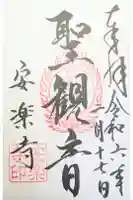 奉拝
令和六年
一月十七日
聖観音
安楽寺